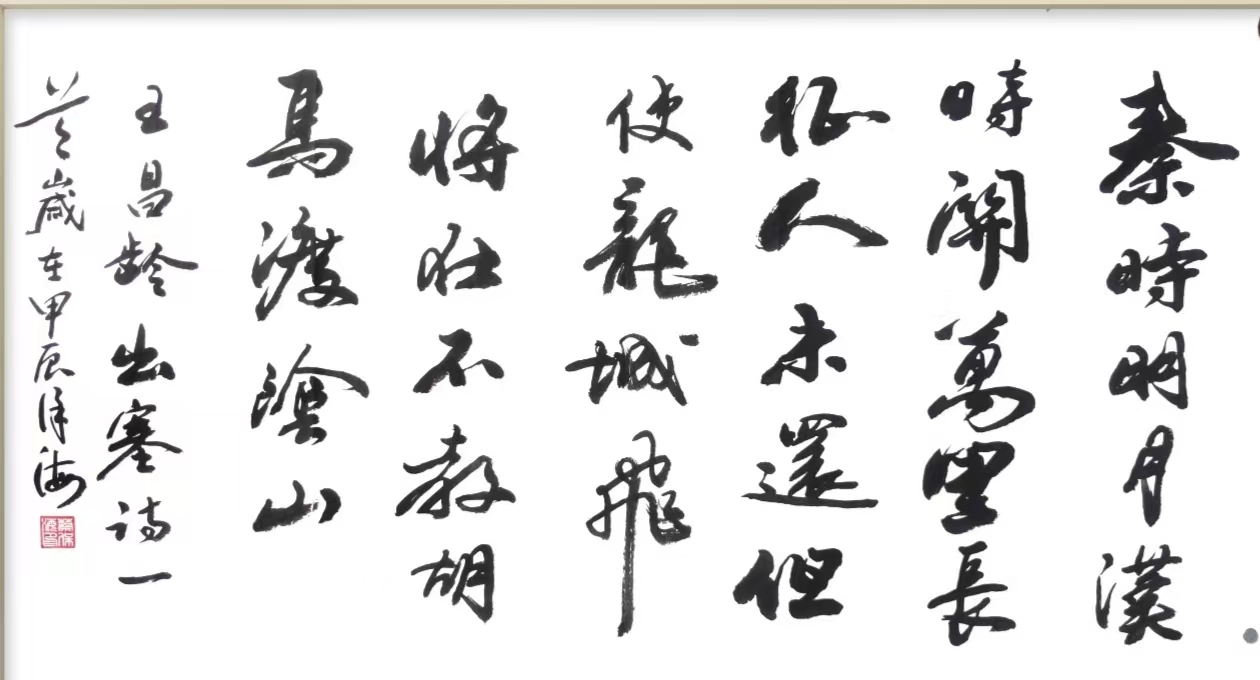 秦時明月漢
時關萬里長
征人未還但
使龍城飛
將在不教胡
馬渡陰山
王昌龄出塞诗一
首歲在甲辰海